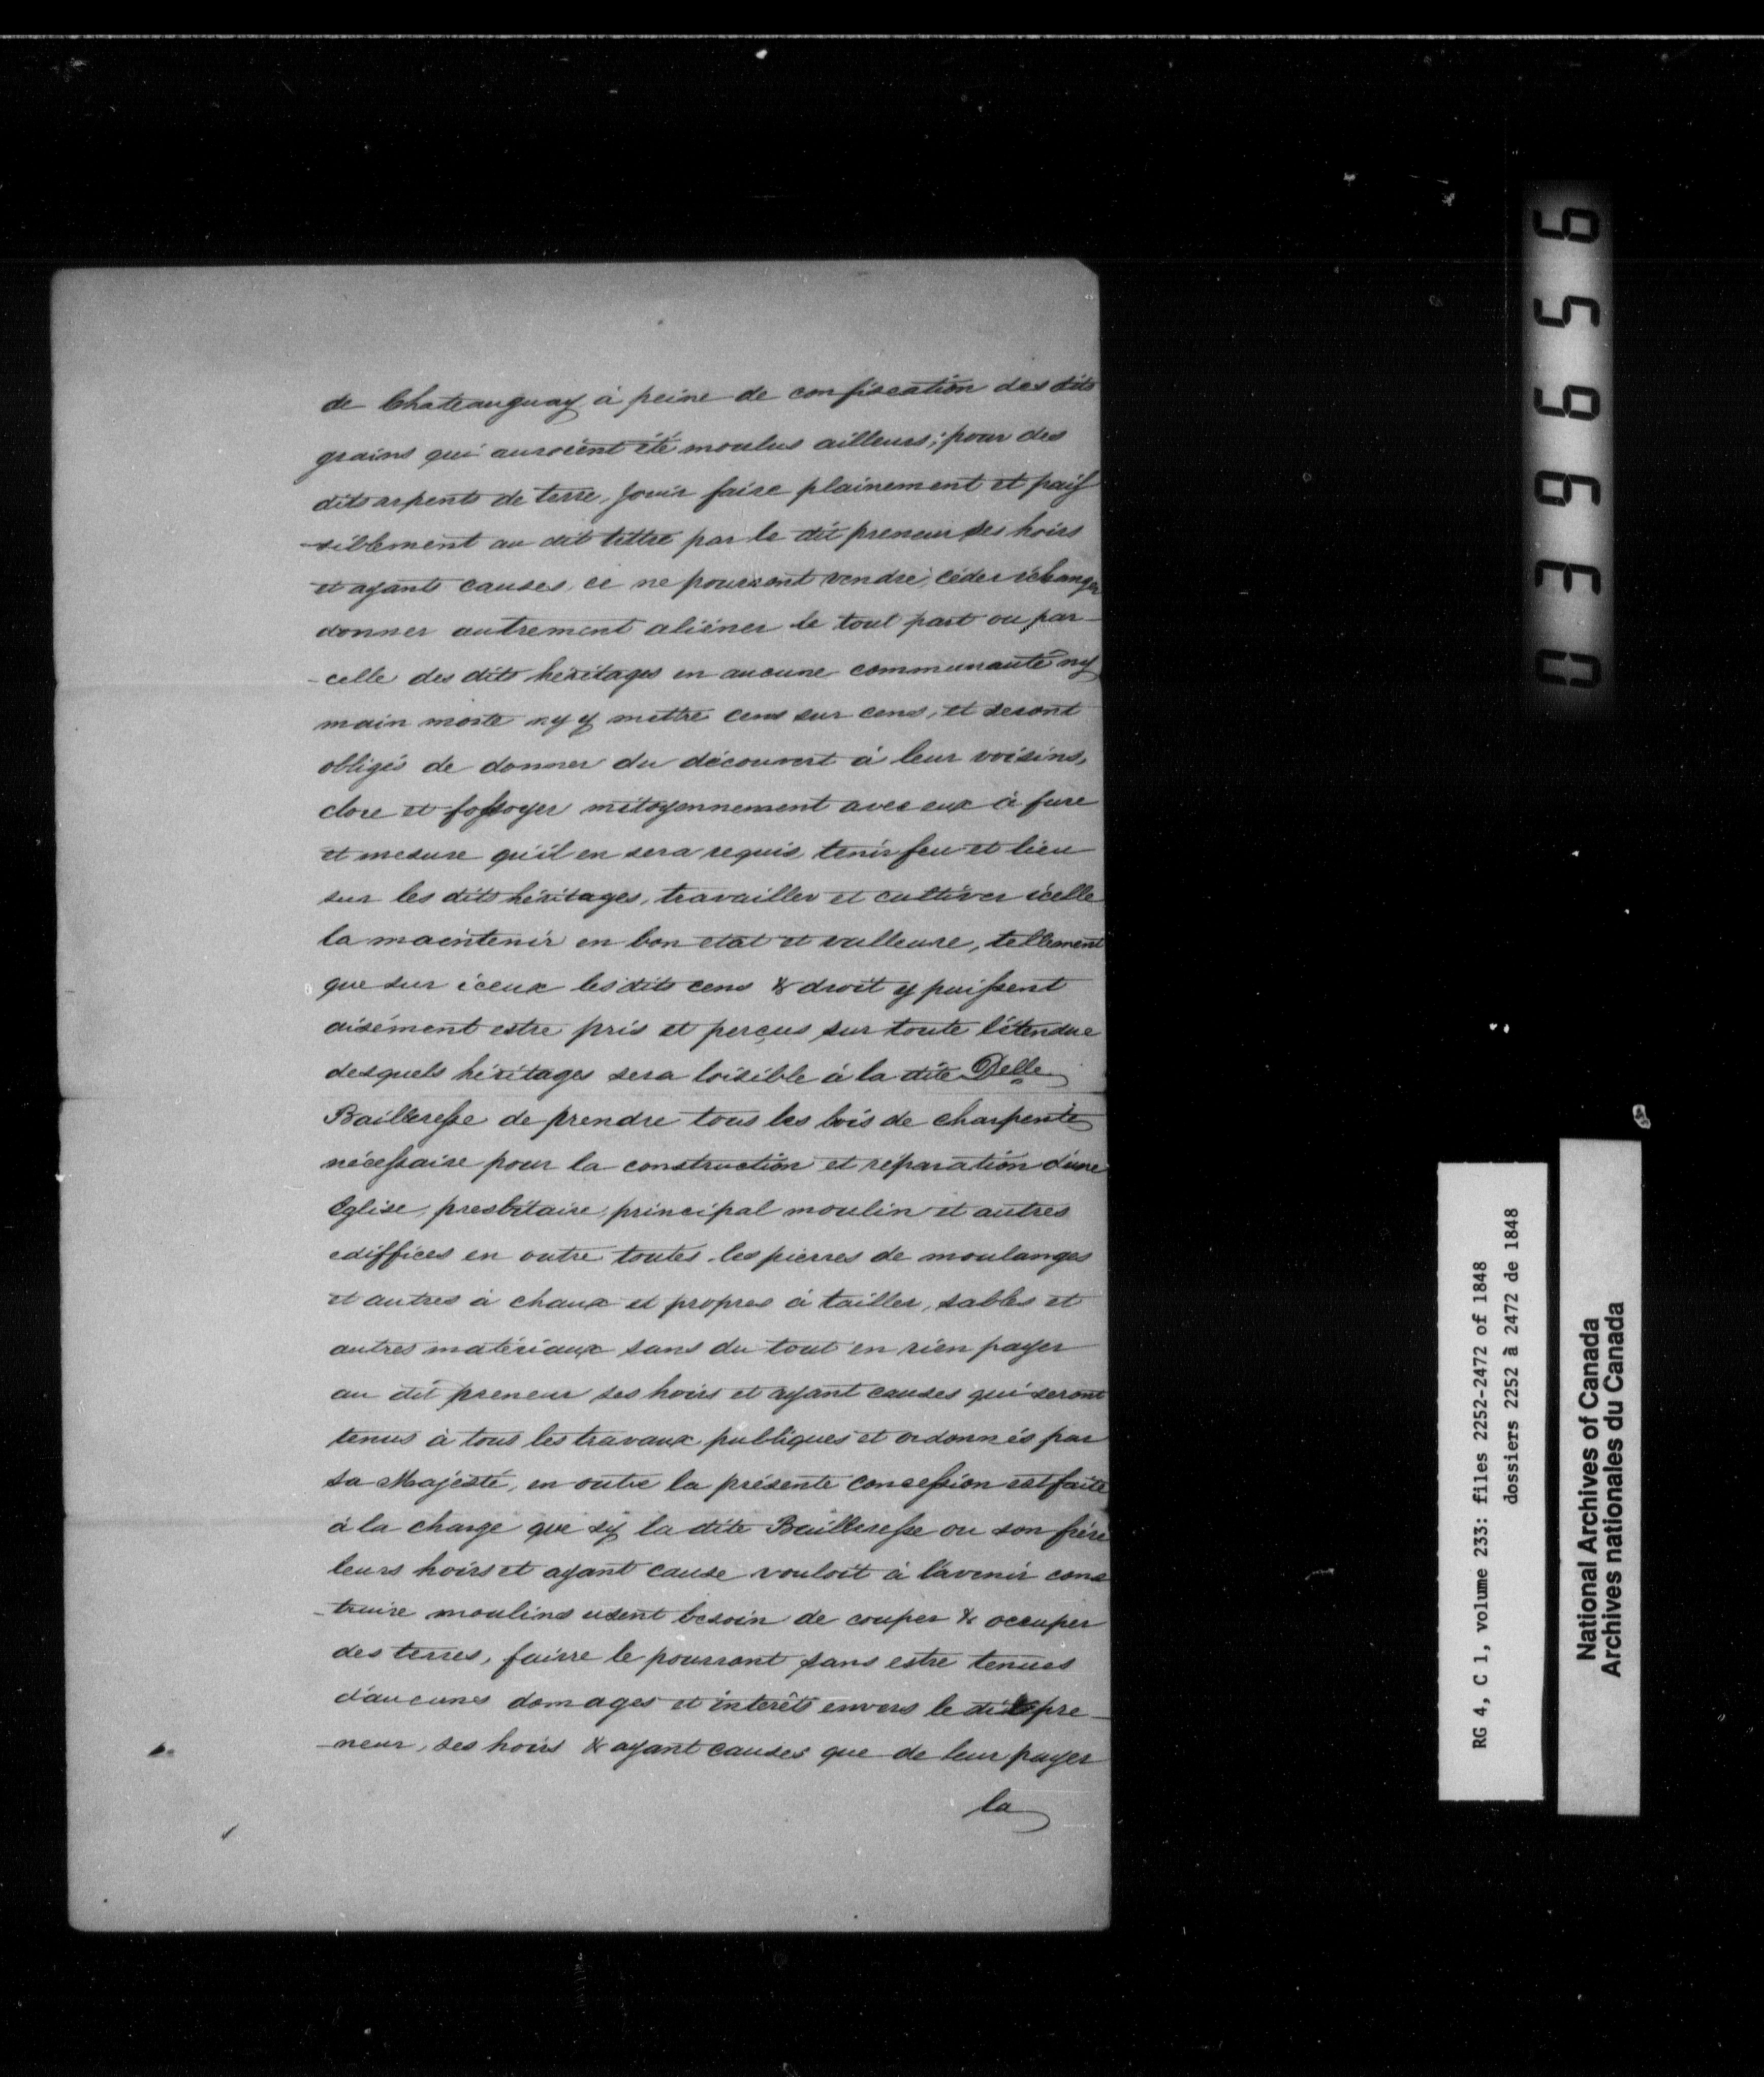 de Chateauguay à peine de confiscation des dits
grains qui auroient été moulus ailleurs; pour des
dits arpents de terre, Jouir faire plainement et paiſ
-siblement au dit tittre par le dit preneur ses hoirs
et ayants causes, ce ne pourront vendre, céder échanger
donner autrement aliéner le tout part ou par-
-celle des dits héritages en aucune communauté ny
main morte ny y mettre cens sur cens, et seront
obligés de donner du découvert à leur voisins,
clore et foſsoyer mitoyennement avec eux à fure
et mesure qu'il en sera requis, tenir feu et lieu
sur les dits héritages, travailler et cultiver icelle
la maintenir en bon etat et valleure, tellement
que sur iceux les dits cens & droit y puiſsent
aisément estre pris et perçus sur toute l'étendue
desquels héritages sera loisible à la dite Delle
Baillereſse de prendre tous les bois de charpente
néceſsaire pour la construction et réparation d'une
Eglise, presbitaire, principal moulin et autres
ediffices en outre toutes les pierres de moulanges
et autres à chaux et propres à tailler, sables et
autres matériaux sans du tout en rien payer
au dit preneur ses hoirs et ayant causes qui seront
tenus à tous les travaux publiques et ordonnés par
Sa Majesté, en outre la présente conceſsion est faite
à la charge que sy la dite Bailleresſe ou son frère
leurs hoirs et ayant cause vouloit à l'avenir cons
-truire moulins usent besoin de couper & occuper
des terres, faire le pourront sans estre tenues
d'aucunes domages et interêts envers le dit pre-
-neur, ses hoirs & ayant causes que de leur payer
la
039656
RG 4, C 1, volume 233: files 2252-2472 of 1848
dossiers 2252 à 2472 de 1848
National Archives of Canada
Archives nationales du Canada